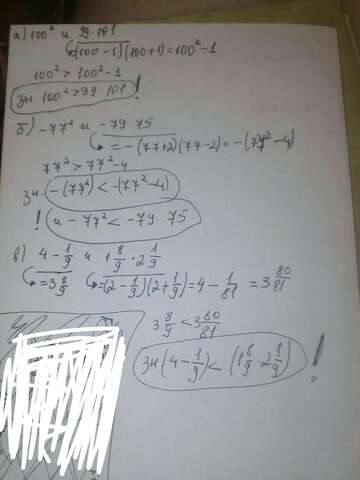 а) 100² и 99·101
(100-1)(100+1)=100²-1
100² > 100²-1
зн. 100² > 99·101 !
б) -77² и -79·75
= -(77+2)(77-2) = -(77²-4)
77² > 77²-4
зн. -(77²) < -(77²-4)
! и -77² < -79·75
в) 4 - 1/9 и 1 8/9 · 2 1/9
= 3 8/9 = (2 - 1/9)(2 + 1/9) = 4 - 1/81 = 3 80/81
3 8/9 < 3 80/81
зн (4 - 1/9) < (1 8/9 · 2 1/9) !